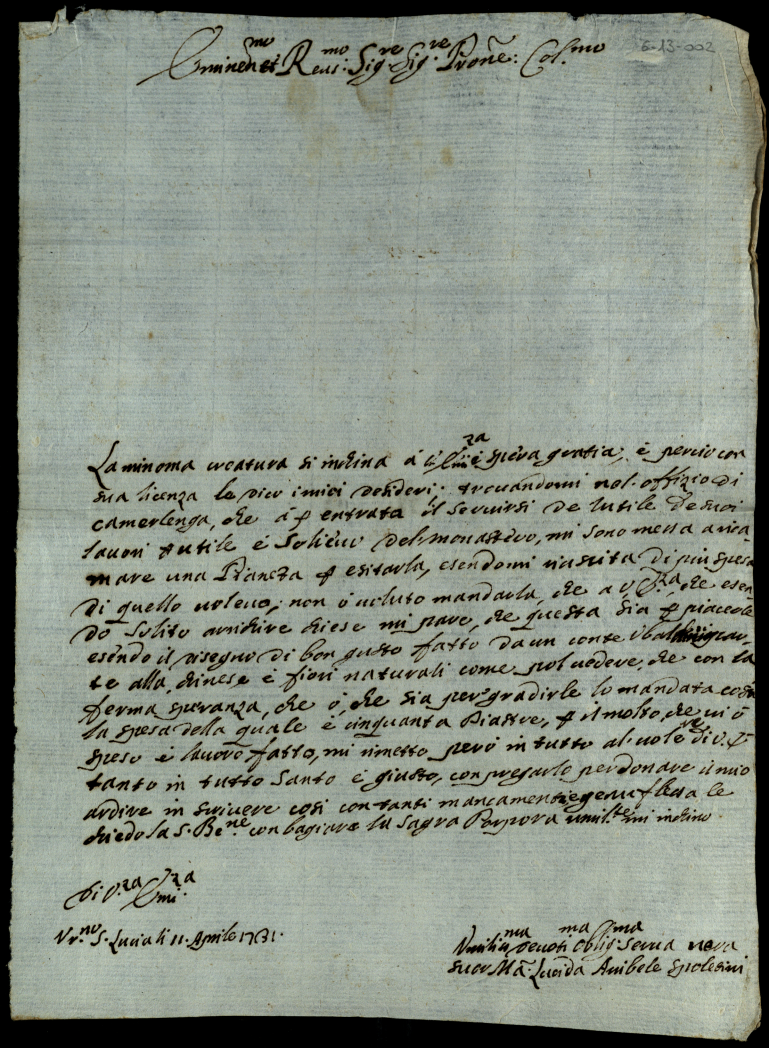 6-13-002
Eminen.mo et Reu.mo Sig.re Sig.re Prone: Col.mo
La minoma creatura si inchina á spera gratia, é percio con
sua licenza le dico i miei desideri: trouandomi nel offizio di
camerlenga, che á p entrata il seruirsi de lutile de suoi
lauori utile é del monastero, mi sono messa a rica
mare una Pianeta p esitarla, esendomi riuscita di piu spesa
di quello uoleuo, non ó uoluto mandarla, che a V che esen
do solito chiese mi pare, che questa sia p piacerle
esendo il disegno di bon gusto fatto da un conte
te alla chinese é fiori naturali come pol uedere, che con la
ferma speranza, che ó, che sia per gradirle lo mandata costi
la spesa della quale é cinquanta Piastre, p il molto, che ui ó
speso é lauoro fatto, mi rimetto peró in tutto al uole di V.
tanto in tutto Santo é giusto, con pregarlo perdonare il mio
ardire in scriuere cosi con tanti mancamenti le
chiedo la S. Be.ne con bagiare la Sagra Porpora umil.te mi inchino.
Di V.ra Em.za
Vr.no S. Lucia li 11. Aprile 1731.
Vmilis.ma deuoti.ma oblig.ma Serua uera
Suor M.a Lucida Anibale Spolesini